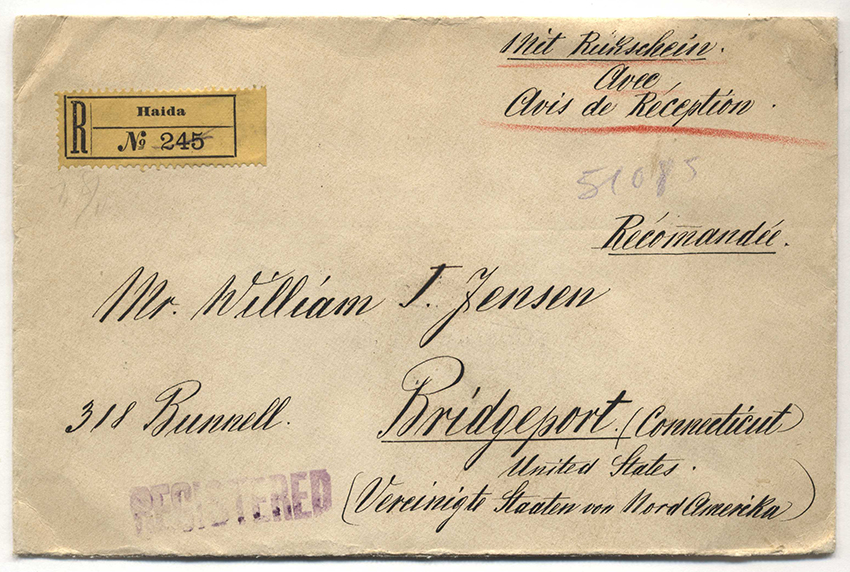 Mit Rükschein.
Avec
Avis de Réception.
R
Haida
No 245
51085
Recómandée.
Mr. William I. Jensen
318 Bunnell.
Bridgeport. (Connecticut
United States.
(Vereinigte Staaten von Nord Amerika)
REGISTERED